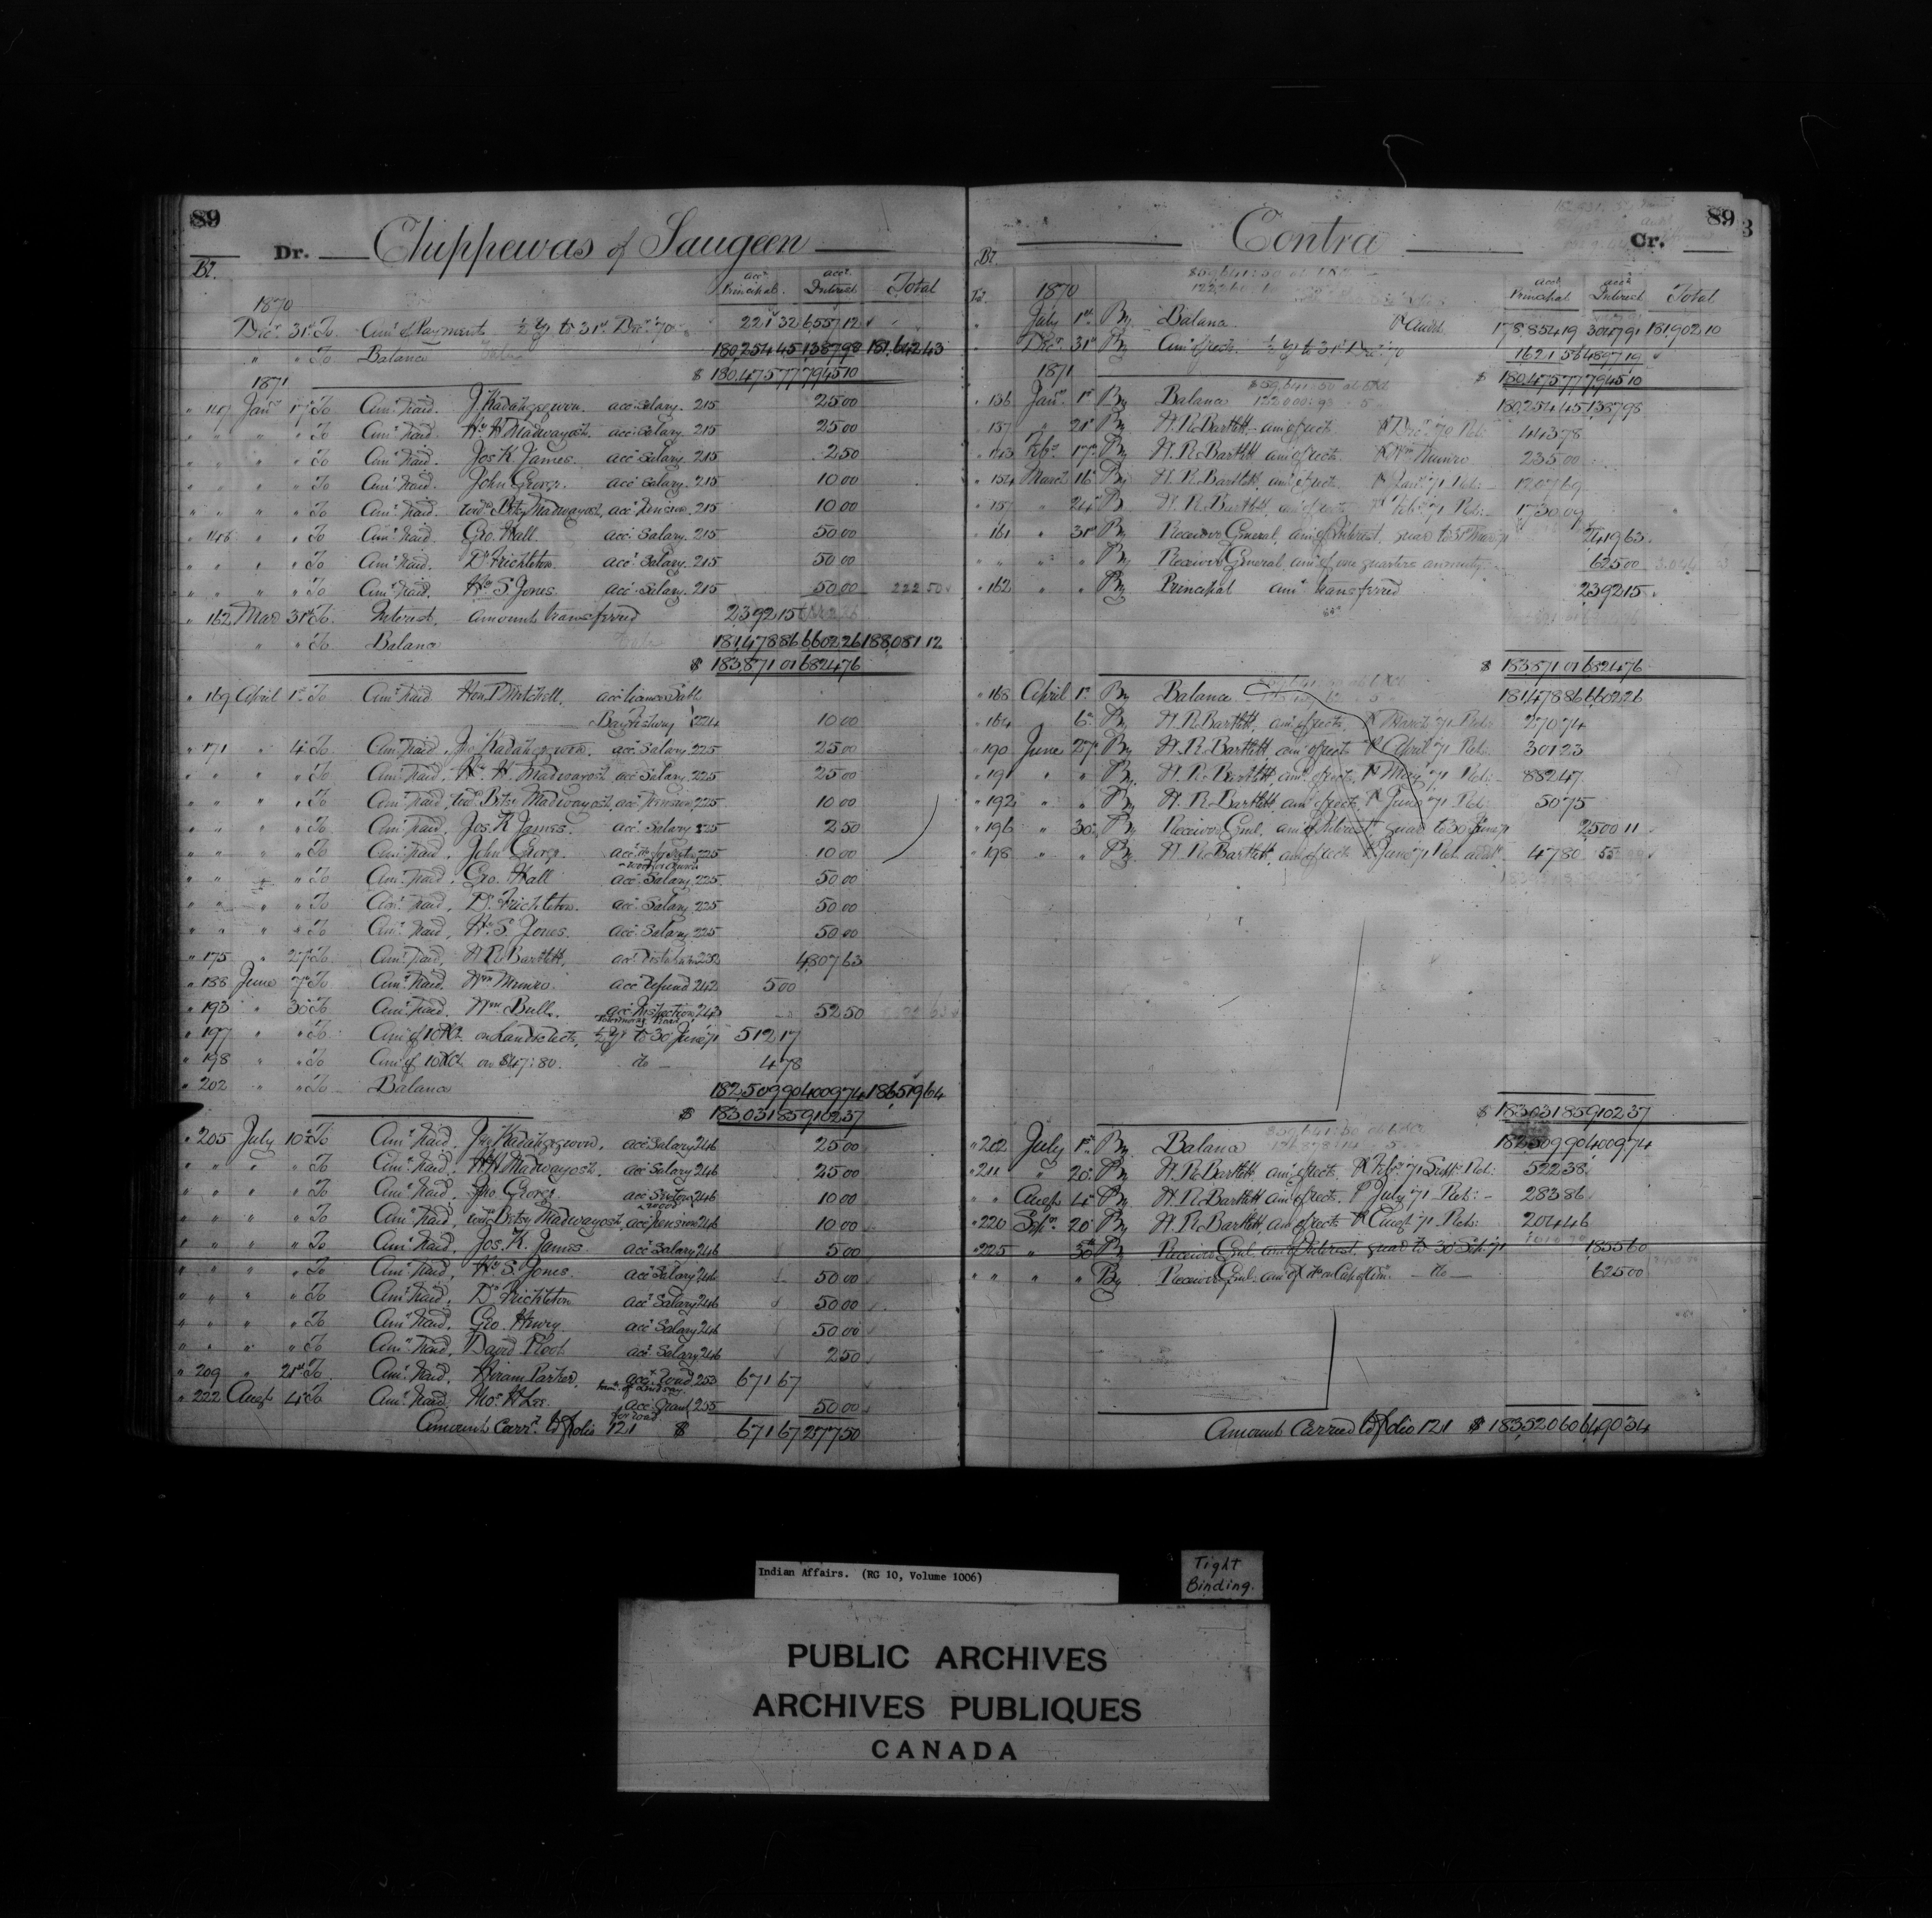 89
Dr. Chippewas of Saugeen
Bl.
acct Principal. acct Interest Total
1870
Decr 31st To Amt of Payments ½ yr to 31st Decr '70 221 32 6,557 12
" " To Balance 180,254 45 1,387 98 181,642 43
$ 180,475 77 7,945 10
1871
" 147 Jany 17th To Amt Paid. J. Kadahgegwon. acct Salary. 215 25 00
" " " " To Amt Paid Wm H. Madwayosh. acct Salary. 215 25 00
" " " " To Amt Paid. Jos K. James. acct Salary. 215 2 50
" " " " To Amt Paid. John George. acct Salary. 215 10 00
" " " " To Amt Paid. Widw Betsy Madwayosh, acct Pension. 215 10 00
" 148 " " To Amt Paid. Geo. Hall. acct Salary. 215 50 00
" " " " To Amt Paid. Dr Frichleton. acct Salary. 215 50 00
" " " " To Amt Paid. Wm S. Jones acct Salary. 215 50 00 222 50
" 162 Mar 31st To Interest, amount transferred 2,392 15
" " To Balance 181,478 86 6,602 26 188,081 12
$ 183,871 01 6,824 76
" 169 April 1st To Amt Paid Hon. P. Mitchell, acct
10 00
" 171 " 4th To Amt Paid. Jno Kadahgegwon. acct Salary. 225 25 00
" " " " To Amt Paid. Wm H. Madwayosh acct Salary. 225 25 00
" " " " To Amt Paid, Widw Betsy Madwayosh, acct Pension, 225 10 00
" " " " To Amt Paid, Jos. K. James. acct Salary 225 2 50
" " " " To Amt Paid, John George. acct 225 10 00
" " " " To Amt Paid, Geo. Hall acct Salary. 225 50 00
" " " " To Amt Paid, Dr Frichleton. acct Salary. 225 50 00
" " " " To Amt Paid, Wm S. Jones. acct Salary. 225 50 00
" 175 " 27th To Amt Paid, W. R. Bartlett, acct 4,807 63
" 188 June 7th To Amt Paid. Wm Munro. acct refund 242 5 00
" 193 " 30th To Amt Paid. Wm Bull. acct Inspection 243 52 50
" 197 " " To Amt of 10 % on Land rects, ½ yr to 30 June '71 512 17
" 198 " " To Amt of 10 % on $47:80. do 4 78
" 202 " " To Balance 182,509 90 4,009 74 186,519 64
$ 183,031 85 9,102 37
" 205 July 10th To Amt Paid, Jno Kadahgegwon, acct Salary 246 25 00
" " " " To Amt Paid, W H Madwayosh. acct Salary 246 25 00
" " " " To Amt Paid, Jno. George. acct Sexton 246 10 00
" " " " To Amt Paid, Widw Betsy Madwayosh, acct Pension 246 10 00
" " " " To Amt Paid, Jos. K. James. acct Salary 246 5 00
" " " " To Amt Paid, Wm S. Jones. acct Salary 246 50 00
" " " " To Amt Paid, Dr Frichleton acct Salary 246 50 00
" " " " To Amt Paid, Geo. Henry acct Salary 246 50 00
" " " " To Amt Paid, David Root acct Salary 246 2 50
" 209 " 21st To Amt Paid, Hiram Parker. acct Road 253 671 67
" 222 Augt 4th To Amt Paid, Thos. H. Lee. acct Grant 255 50 00
Amount Carrd to folio 121 $ 671 67 277 50
89
Contra Cr.
Bl.
acct Principal acct Interest Total
1870
July 1st By Balance 178,854 19 3,047 91 181,902 10
Decr 31st By Amt of rects. ½ yr to 31st Decr '70 1,621 58 4,897 19
1871
$ 180,475 77 7,945 10
" 136 Jany 1st By Balance 180,254 45 1,387 98
" 137 " 21st By W. R. Bartlett, amt of rects. Pr Decr '70 Ret: 443 78
" 143 Feby 17th By W. R. Bartlett amt of rects. Pr Wm Munro 235 00
" 154 March 16th By W. R. Bartlett, amt of rects. Pr Jany '71 Ret: 1,207 69
" 157 " 24th By W. R. Bartlett, amt of rects Pr Feby '71 Ret: 1,730 09
" 161 " 31st By Receiver General, amt of Interest, quar to 31st Mar '71 2,419 63
" " " " By Receiver General, amt of one quarters annuity 625 00
" 162 " " By Principal amt transferred 2,392 15
$ 183,871 01 6,824 76
" 168 April 1st By Balance 181,478 86 6,602 26
" 164 6th By W. R. Bartlett, amt of rects, Pr March '71 Ret: 270 74
" 190 June 27th By W. R. Bartlett, amt of rects Pr April '71 Ret: 301 23
" 191 " " By W. R. Bartlett, amt of rects, Pr May '71 Ret: 882 47
" 192 " " By W. R. Bartlett amt of rects, Pr June '71 Ret: 50 75
" 196 " 30th By Receiver Genl, amt of Interest, quar to 30 June '71 2,500 11
" 198 " " By W. R. Bartlett, amt of rects Pr June '71 Ret: 47 80
$ 183,031 85 9,102 37
" 202 July 1st By Balance 182,509 90 4,009 74
" 211 " 20th By W. R. Bartlett, amt of rects. Pr Feby '71 Ret: 522 38
" " Augt 4th By W. R. Bartlett amt of rects. Pr July '71 Ret: 283 86
" 220 Sepr 20th By W. R. Bartlett amt of rects Pr Augt '71 Ret: 204 46
" 225 " 30th By Receiver Genl. amt of Interest, quar to 30 Sep. '71 1,855 60
" " " " By Receiver Genl. amt of do 625 00
Amount Carried to folio 121 $ 183,520 60 6,490 34
Indian Affairs. (RG 10, Volume 1006)
Tight
Binding.
PUBLIC ARCHIVES
ARCHIVES PUBLIQUES
CANADA